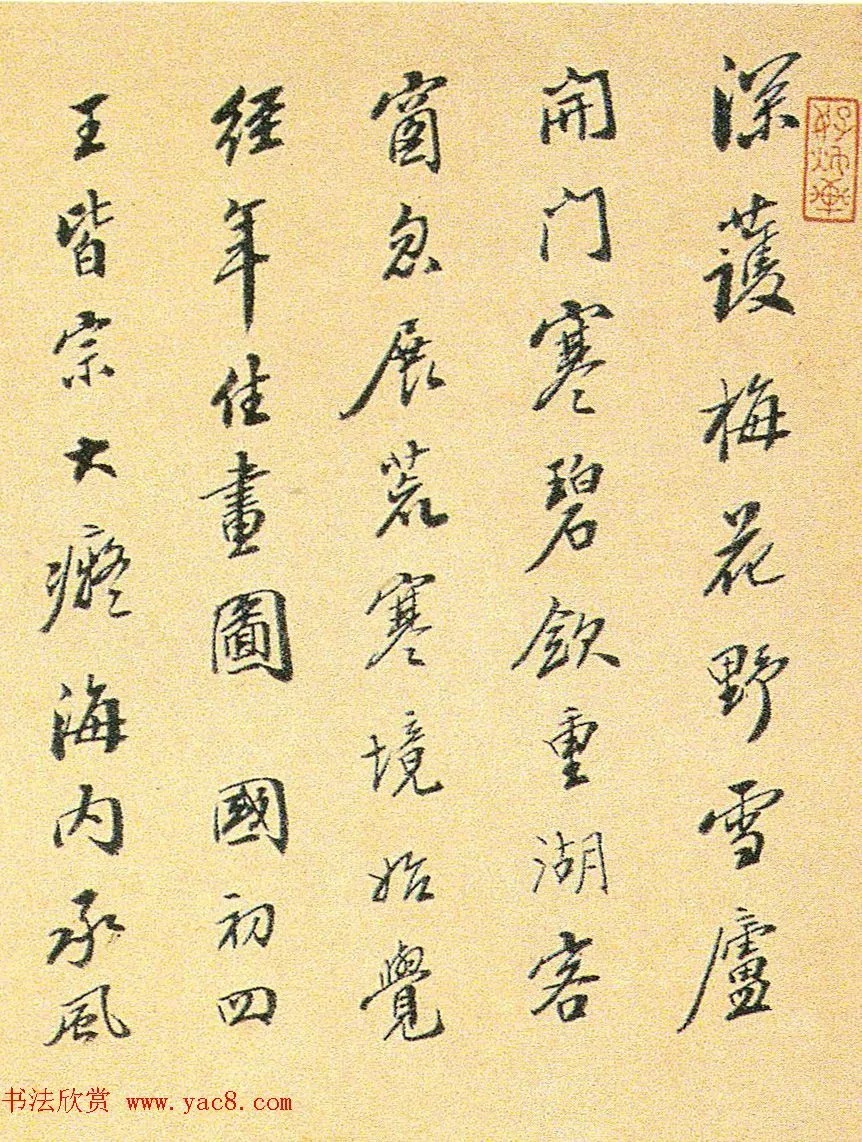 深護梅花野雪廬
開门寒碧欽重湖客
窗忽展荒寒境始覺
經年住畫圖 國初四
王皆宗大癡海内承風
书法欣赏 www.yac8.com